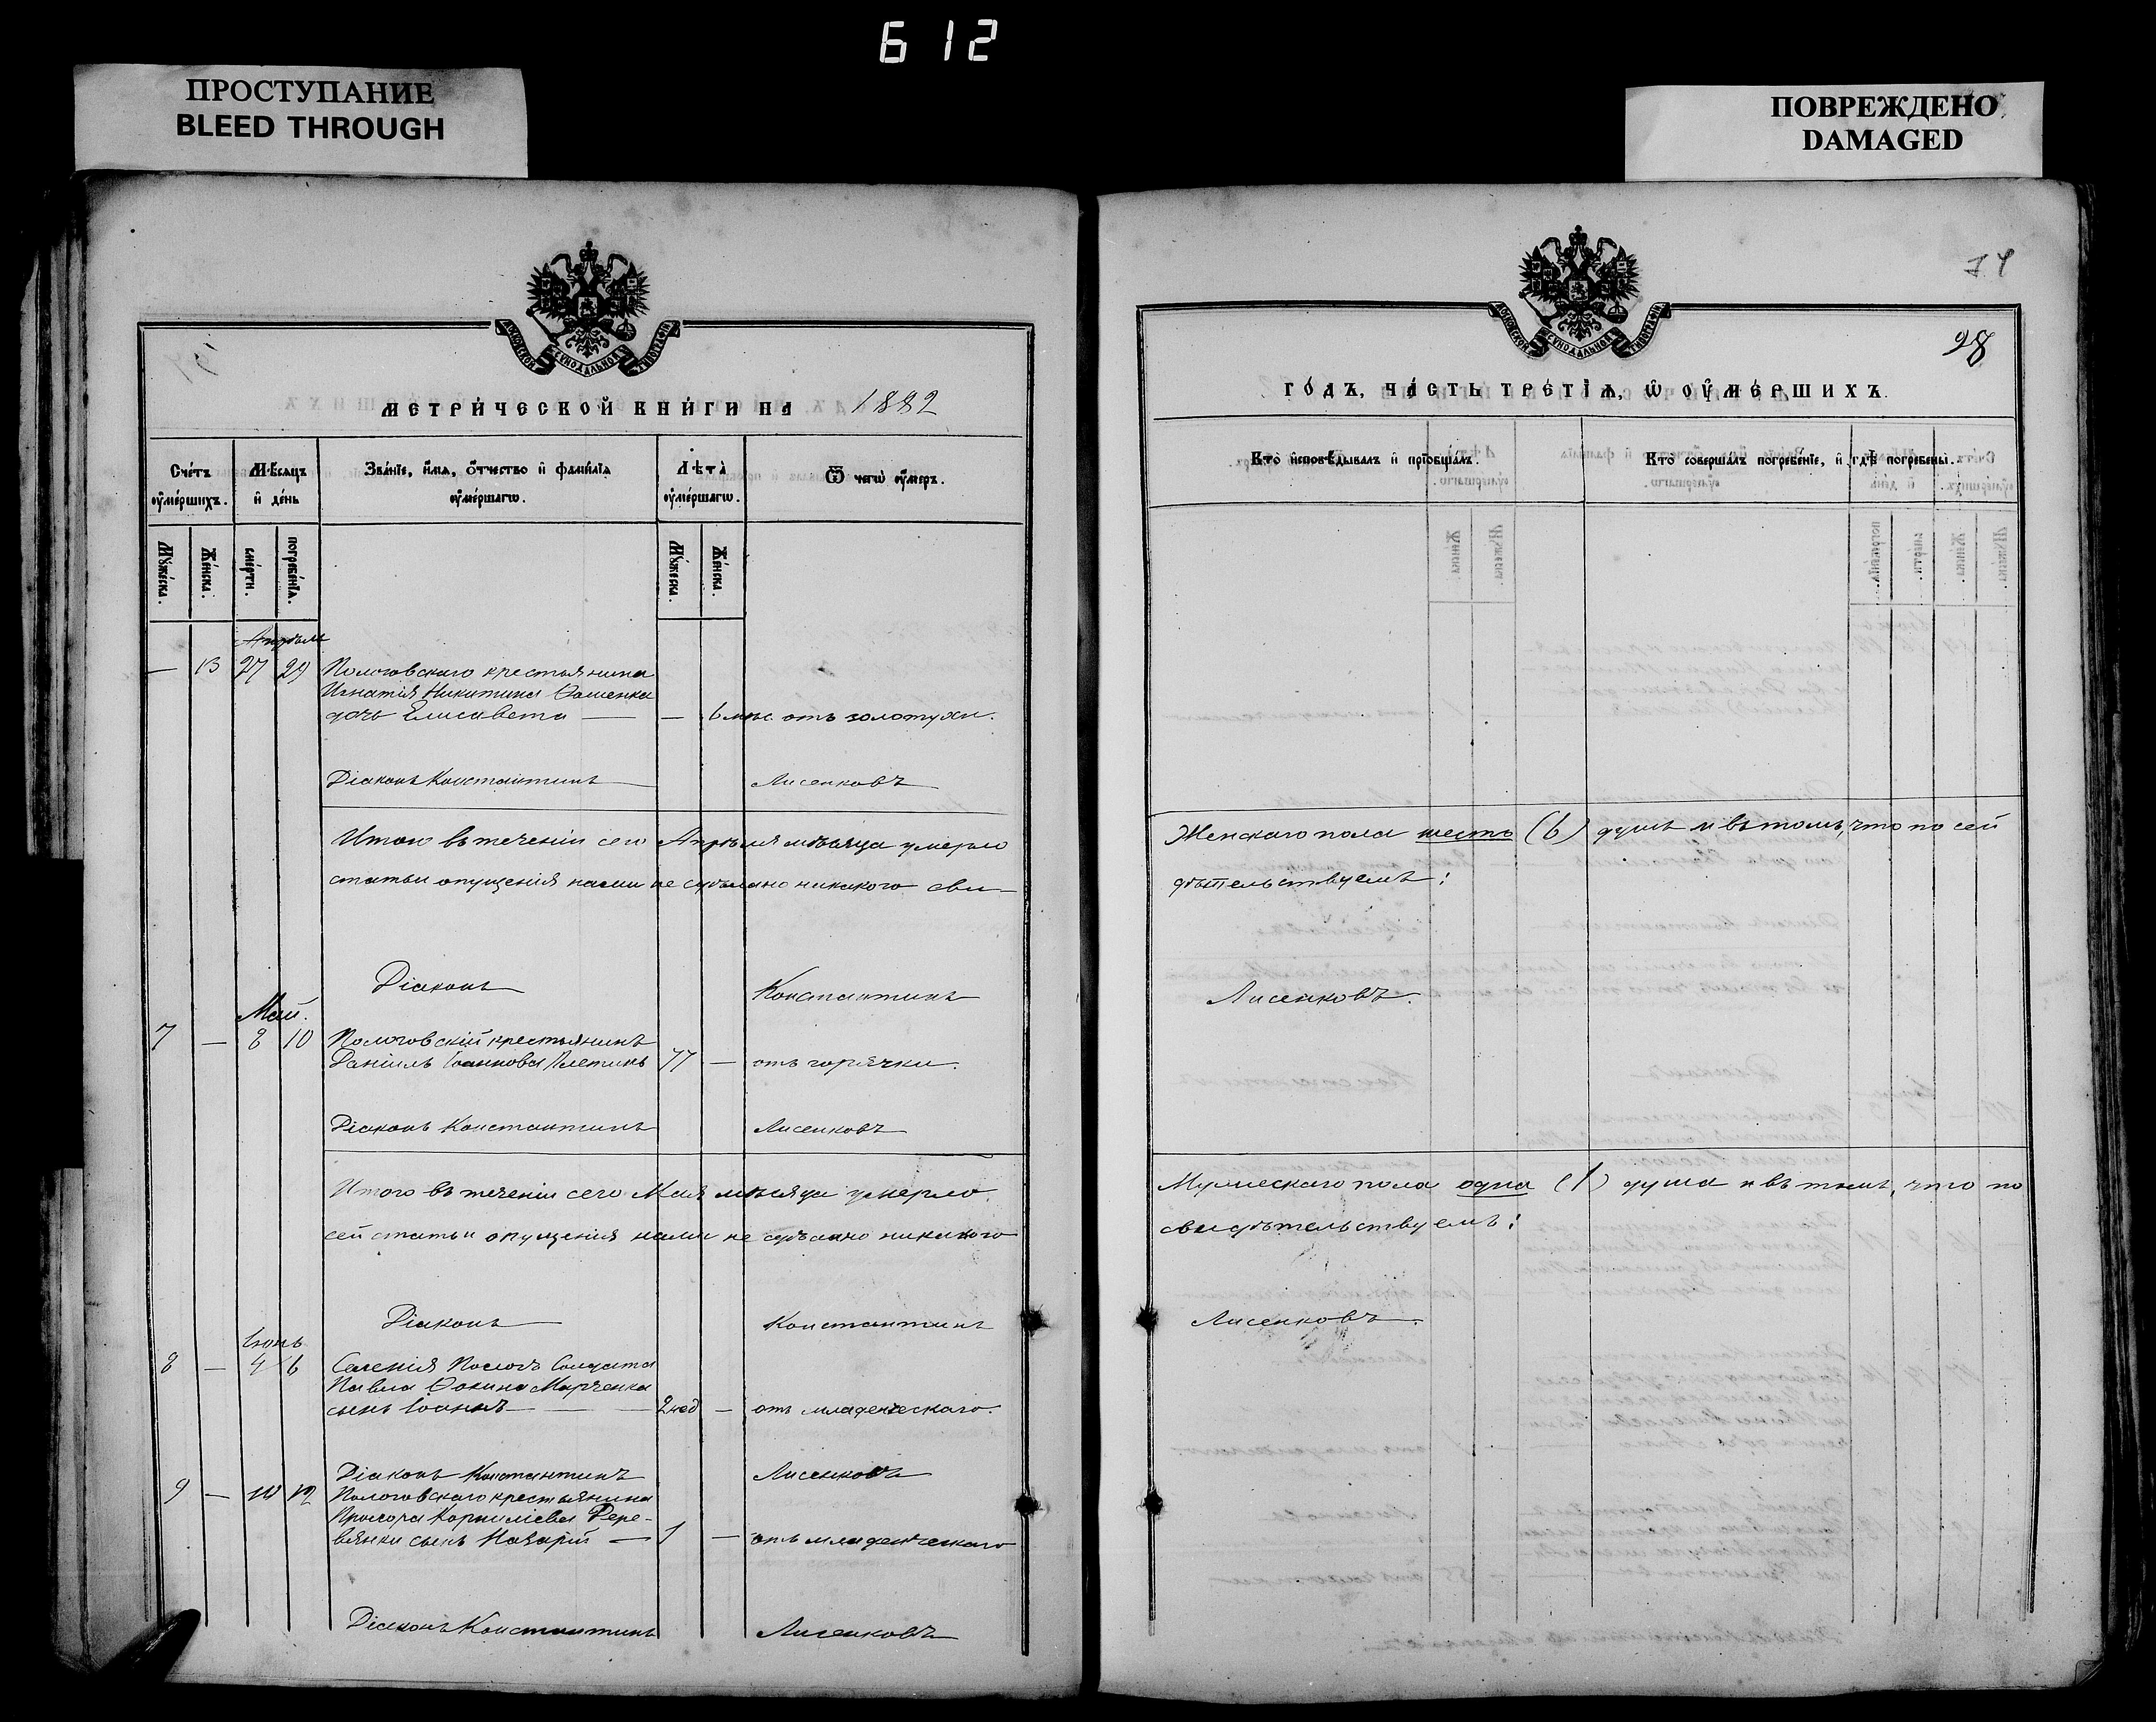 612
ПРОСТУПАНИЕ
BLEED THROUGH
ПОВРЕЖДЕНО
DAMAGED
МОСКОВСКОЙ СѴНОДАЛЬНОЙ ТИПОГРАФІИ
МЕТРИ́ЧЕСКОЙ КНИ́ГИ НА 1882
Сче́тъ ᲂу҆ме́ршихъ.
Мѣ́сяцъ и҆ де́нь
Зва́нїе, и҆́мѧ, ѻ҆́тчество и҆ фами́лїѧ ᲂу҆ме́ршагѡ.
Лѣ́та ᲂу҆ме́ршагѡ.
Ѿ чегѡ̀ ᲂу҆́меръ.
Мꙋ́жеска.
Же́нска.
сме́рти.
погребе́нїѧ.
Мꙋ́жеска.
Же́нска.
Апрѣль
— 13 27 29 Пологовскаго крестьянина
Игнатія Никитина Ѳоменка
дочь Елисавета — — 6 мѣс отъ золотухи.
Діаконъ Константинъ Лисенковъ
Итого въ теченіи сего Апрѣля мѣсяца умерло
статьи опущенія нами не сдѣлано никакого сви-
Діаконъ Константинъ
Май.
7 — 8 10 Пологовскій крестьянинъ
Даніилъ Іоанновъ Плетинь 77 — отъ горячки.
Діаконъ Константинъ Лисенковъ
Итого въ теченіи сего Мая мѣсяца умерло
сей статьи опущенія нами не сдѣлано никакого
Діаконъ Константинъ
Іюнь
8 — 4 6 Селенія Пологъ Солдата
Павла Ѳомина Марченка
сынъ Іоаннъ — 2 нед — отъ младенческаго.
Діаконъ Константинъ Лисенковъ
9 — 10 12 Пологовскаго крестьянина
Прохора Корниліева Дере-
вянки сынъ Назарій — 1 — отъ младенческаго
Діаконъ Константинъ Лисенковъ
98
МОСКОВСКОЙ СѴНОДАЛЬНОЙ ТИПОГРАФІИ
ГО́ДЪ, ЧА́СТЬ ТРЕ́ТЇѦ, Ѡ҆ ОУ҆МЕ́РШИХЪ.
Кто̀ и҆сповѣ́дывалъ и҆ прїѡбща́лъ.
Кто̀ соверша́лъ погребе́нїе, и҆ гдѣ̀ погребены̀.
Женскаго пола шесть (6) душъ и въ томъ, что по сей
дѣтельствуемъ:
Лисенковъ.
Мужескаго пола одна (1) душа и въ томъ, что по
свидѣтельствуемъ:
Лисенковъ.